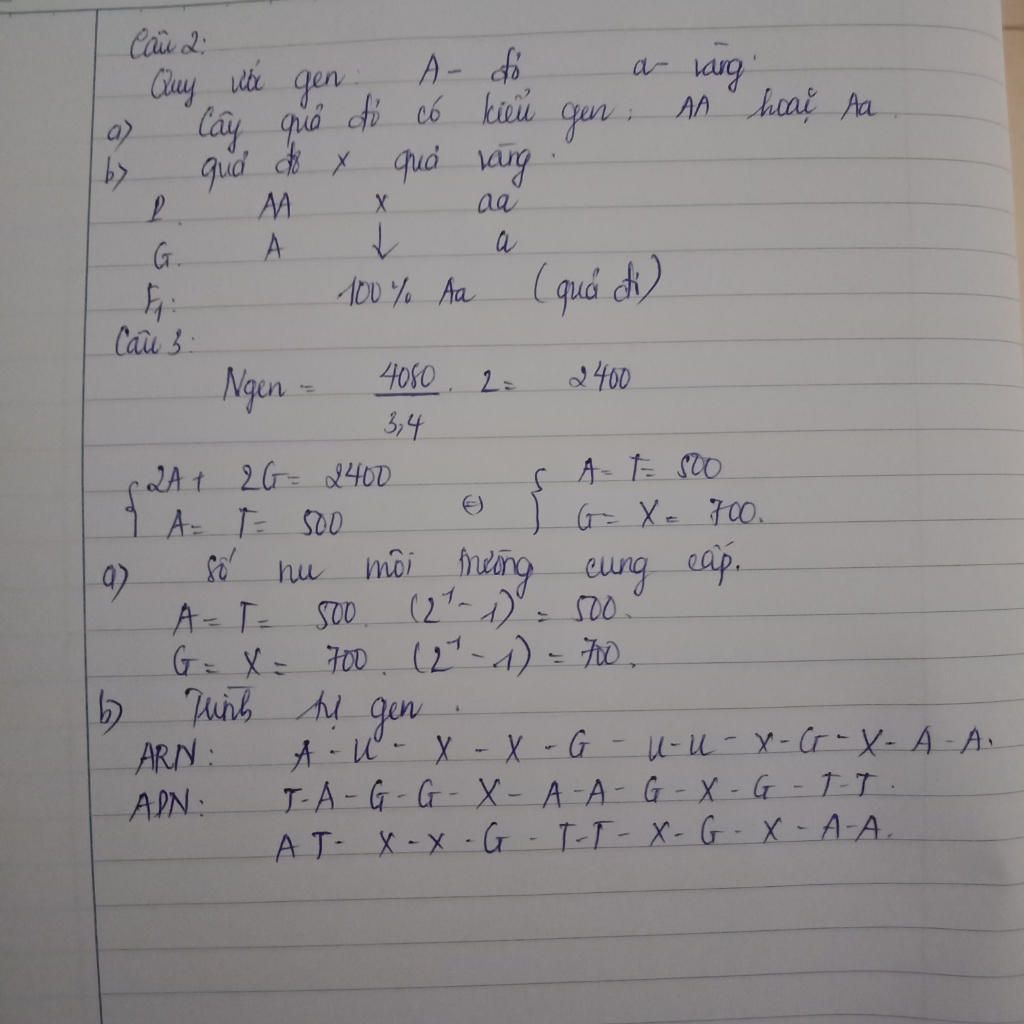 Câu 2:
Quy ước gen: A - đỏ a - vàng.
a) Cây quả đỏ có kiểu gen: AA hoặc Aa
b) quả đỏ x quả vàng.
P. AA x aa
G. A ↓ a
F1: 100% Aa (quả đỏ)
Câu 3:
Ngen = 4080/3,4 . 2 = 2400
{ 2A + 2G = 2400 { A = T = 500
A = T = 500 (=) G = X = 700.
a) Số nu môi trường cung cấp.
A = T = 500. (2^1 - 1) = 500.
G = X = 700. (2^1 - 1) = 700.
b) Trình tự gen.
ARN: A - U - X - X - G - U - U - X - G - X - A - A.
ADN: T - A - G - G - X - A - A - G - X - G - T - T.
A T - X - X - G - T - T - X - G - X - A - A.